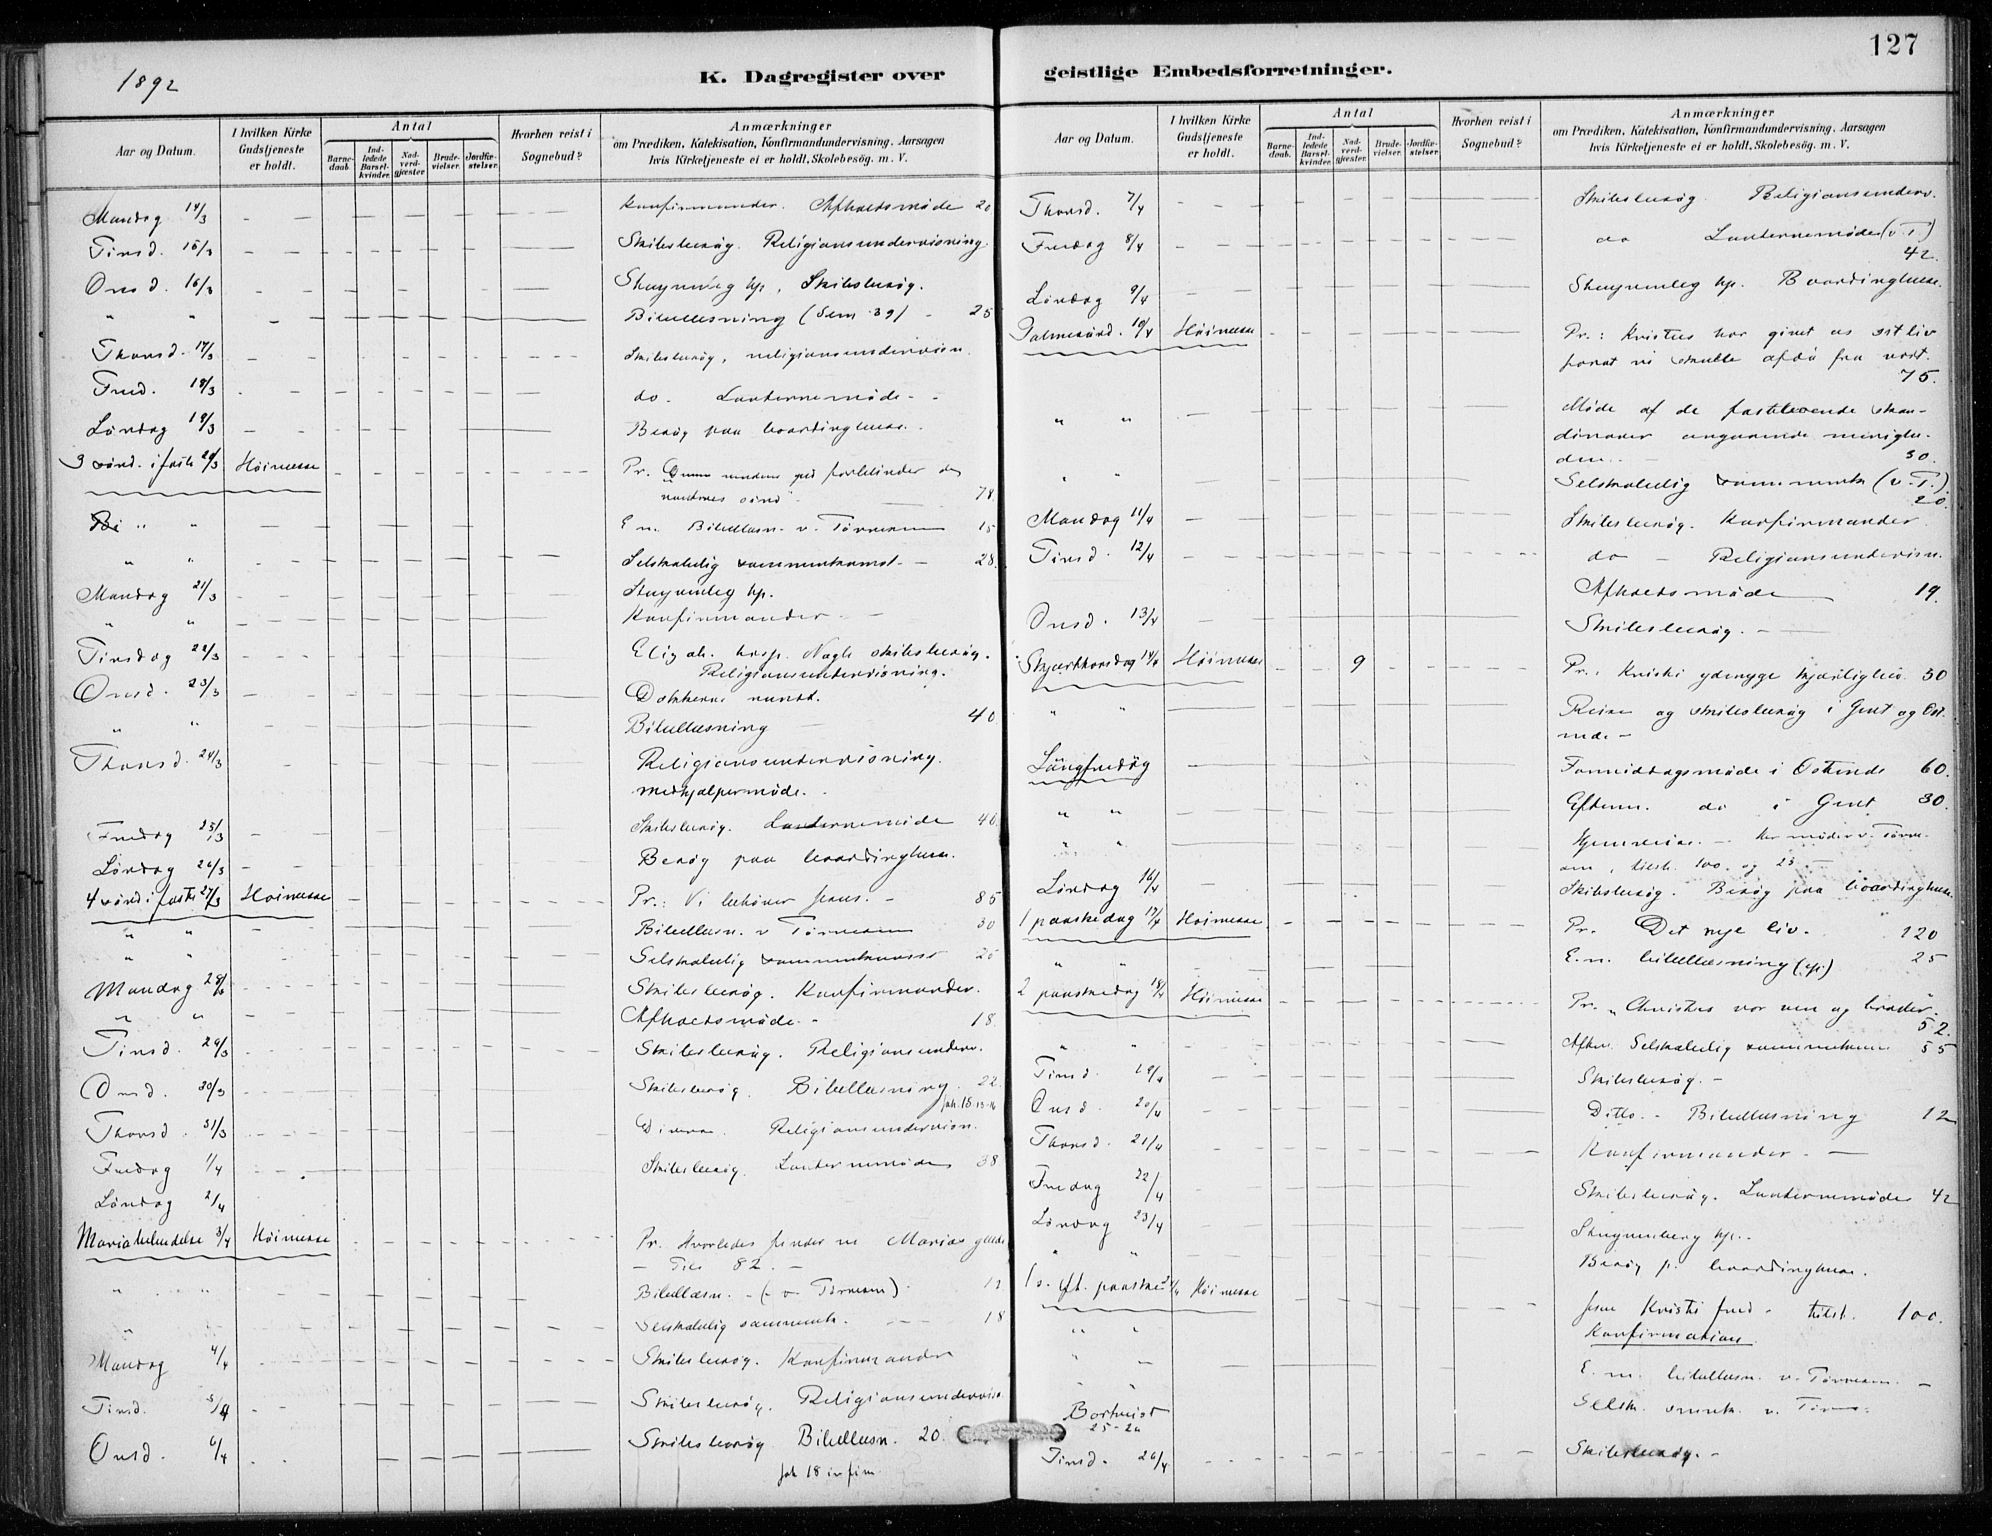 127
1892
K. Dagregister over geistlige Embedsforretninger.
Aar og Datum.
I hvilken Kirke Gudstjeneste er holdt.
Antal
Barnedaab.
Indledede Barselkvinder.
Nadverdgjæster.
Brudevielser.
Jordfæstelser.
Hvorhen reist i Sognebud?
Anmærkninger
om Prædiken, Katekisation, Konfirmandundervisning, Aarsagen
hvis Kirketjeneste ei er holdt, Skolebesøg. m. V.
Mandag 14/3 Konfirmander. Afholdsmøde 20
Tirsd. 15/3 Skibsbesøg. Religionsundervisning.
Onsd. 16/3 Skibsbesøg.
" " Bibellæsning 25
Thorsd. 17/3 Skibsbesøg, religionsundervisn.
Fred. 18/3 do. Lanternemøde
Lørdag 19/3 Besøg paa boardinghuse.
3 sønd. i faste 20/3 Høimesse Pr. forblinder de
sind" 78
" " E m. Bibellæsn. v. 15
" " Selskabelig sammenkomst. 28
Mandag 21/3 hp.
" " Konfirmander
Tirsdag 22/3 hosp. skibsbesøg.
Religionsundervisning.
Onsd. 23/3 Dokkerne rundt.
" " Bibellæsning 40
Thorsd. 24/3 Religionsundervisning.
medhjælpermøde.
Fredag 25/3 Skibsbesøg. Lanternemøde 40
Lørdag 26/3 Besøg paa boardinghuse.
4 sønd i faste 27/3 Høimesse Pr.: Vi behøver Jesus. 85
" " Bibellæsn. v 30
" " Selskabelig 25
Mandag 28/3 Skibsbesøg. Konfirmander.
" " Afholdsmøde. 18.
Tirsd. 29/3 Skibsbesøg. Religionsunderv.
Onsd. 30/3 Skibsbesøg. Bibellæsning. 22
Joh. 15
Thorsd. 31/3 Diverse. Religionsundervisn.
Fredag 1/4 Skibsbesøg. Lanternemøde 38
Lørdag 2/4
Maria bebudelse 3/4 Høimesse Pr. Hvorledes finder vi Marias
82.
" " Bibellæsn. 12
" Selskabelig sammenk. 18
Mandag 4/4 Skibsbesøg. Konfirmander
Tirsd. 5/4 Skibsbesøg. Religionsundervisn.
Onsd. 6/4 Skibsbesøg Bibellæsn. 20.
Joh 18
Aar og Datum.
I hvilken Kirke Gudstjeneste er holdt.
Antal
Barnedaab.
Indledede Barselkvinder.
Nadverdgjæster.
Brudevielser.
Jordfæstelser.
Hvorhen reist i Sognebud?
Anmærkninger
om Prædiken, Katekisation, Konfirmandundervisning, Aarsagen
hvis Kirketjeneste ei er holdt, Skolebesøg. m. V.
Thorsd. 7/4 Skibsbesøg. Religionsunderv.
Fredag 8/4 do Lanternemøde (v. T.)
42.
Lørdag 9/4 hp. Boardinghuse.
Palmesønd. 10/4 Høimesse Pr.: Kristus har givet os sit liv
forat vi skulle afdø fra vort.
75.
" " Møde af de fastboende skan-
dinaver angaaende menighe-
den. 30.
" " Selskabelig sammenk (v. T.)
20.
Mandag 11/4 Skibsbesøg. Konfirmander.
Tirsd. 12/4 do Religionsundervisn.
Afholdsmøde 19.
Onsd. 13/4 Skibsbesøg.
Skjærthorsdag 14/4 Høimesse 9 Pr.: Kristi ydmyge kjærlighed. 30
" " Reise og skibsbesøg i Gent og Ost-
ende
Langfredag Formiddagsmøde i Ostende 60.
" " Efterm. do i Gent 30.
" " Hjemreise. Her møder v.
100. og 23
Lørdag 16/4 Skibsbesøg. Besøg paa boardinghuse.
1 paaskedag 17/4 Høimesse Pr. Det nye liv. 120
" " E. m. bibellæsning 25
2 paaskedag 18/4 Høimesse Pr. "Christus vor ven og broder".
52
" " Aften. Selskabelig 55
Tirsd. 19/4 Skibsbesøg.
Onsd. 20/4 Ditto. Bibellæsning 12
Thorsd. 21/4 Konfirmander.
Fredag 22/4 Skibsbesøg. Lanternemøde 42
Lørdag 23/4 hp.
" " Besøg p. boardinghuse.
1 s. eft. paaske 24/4 Høimesse Jesu Kristi fred. tilst. 100.
" " Konfirmation.
" " E. m. bibellæsn. v.
" " Selsk. v.
Bortreist
25-26
Tirsd. 26/4 Skibsbesøg.